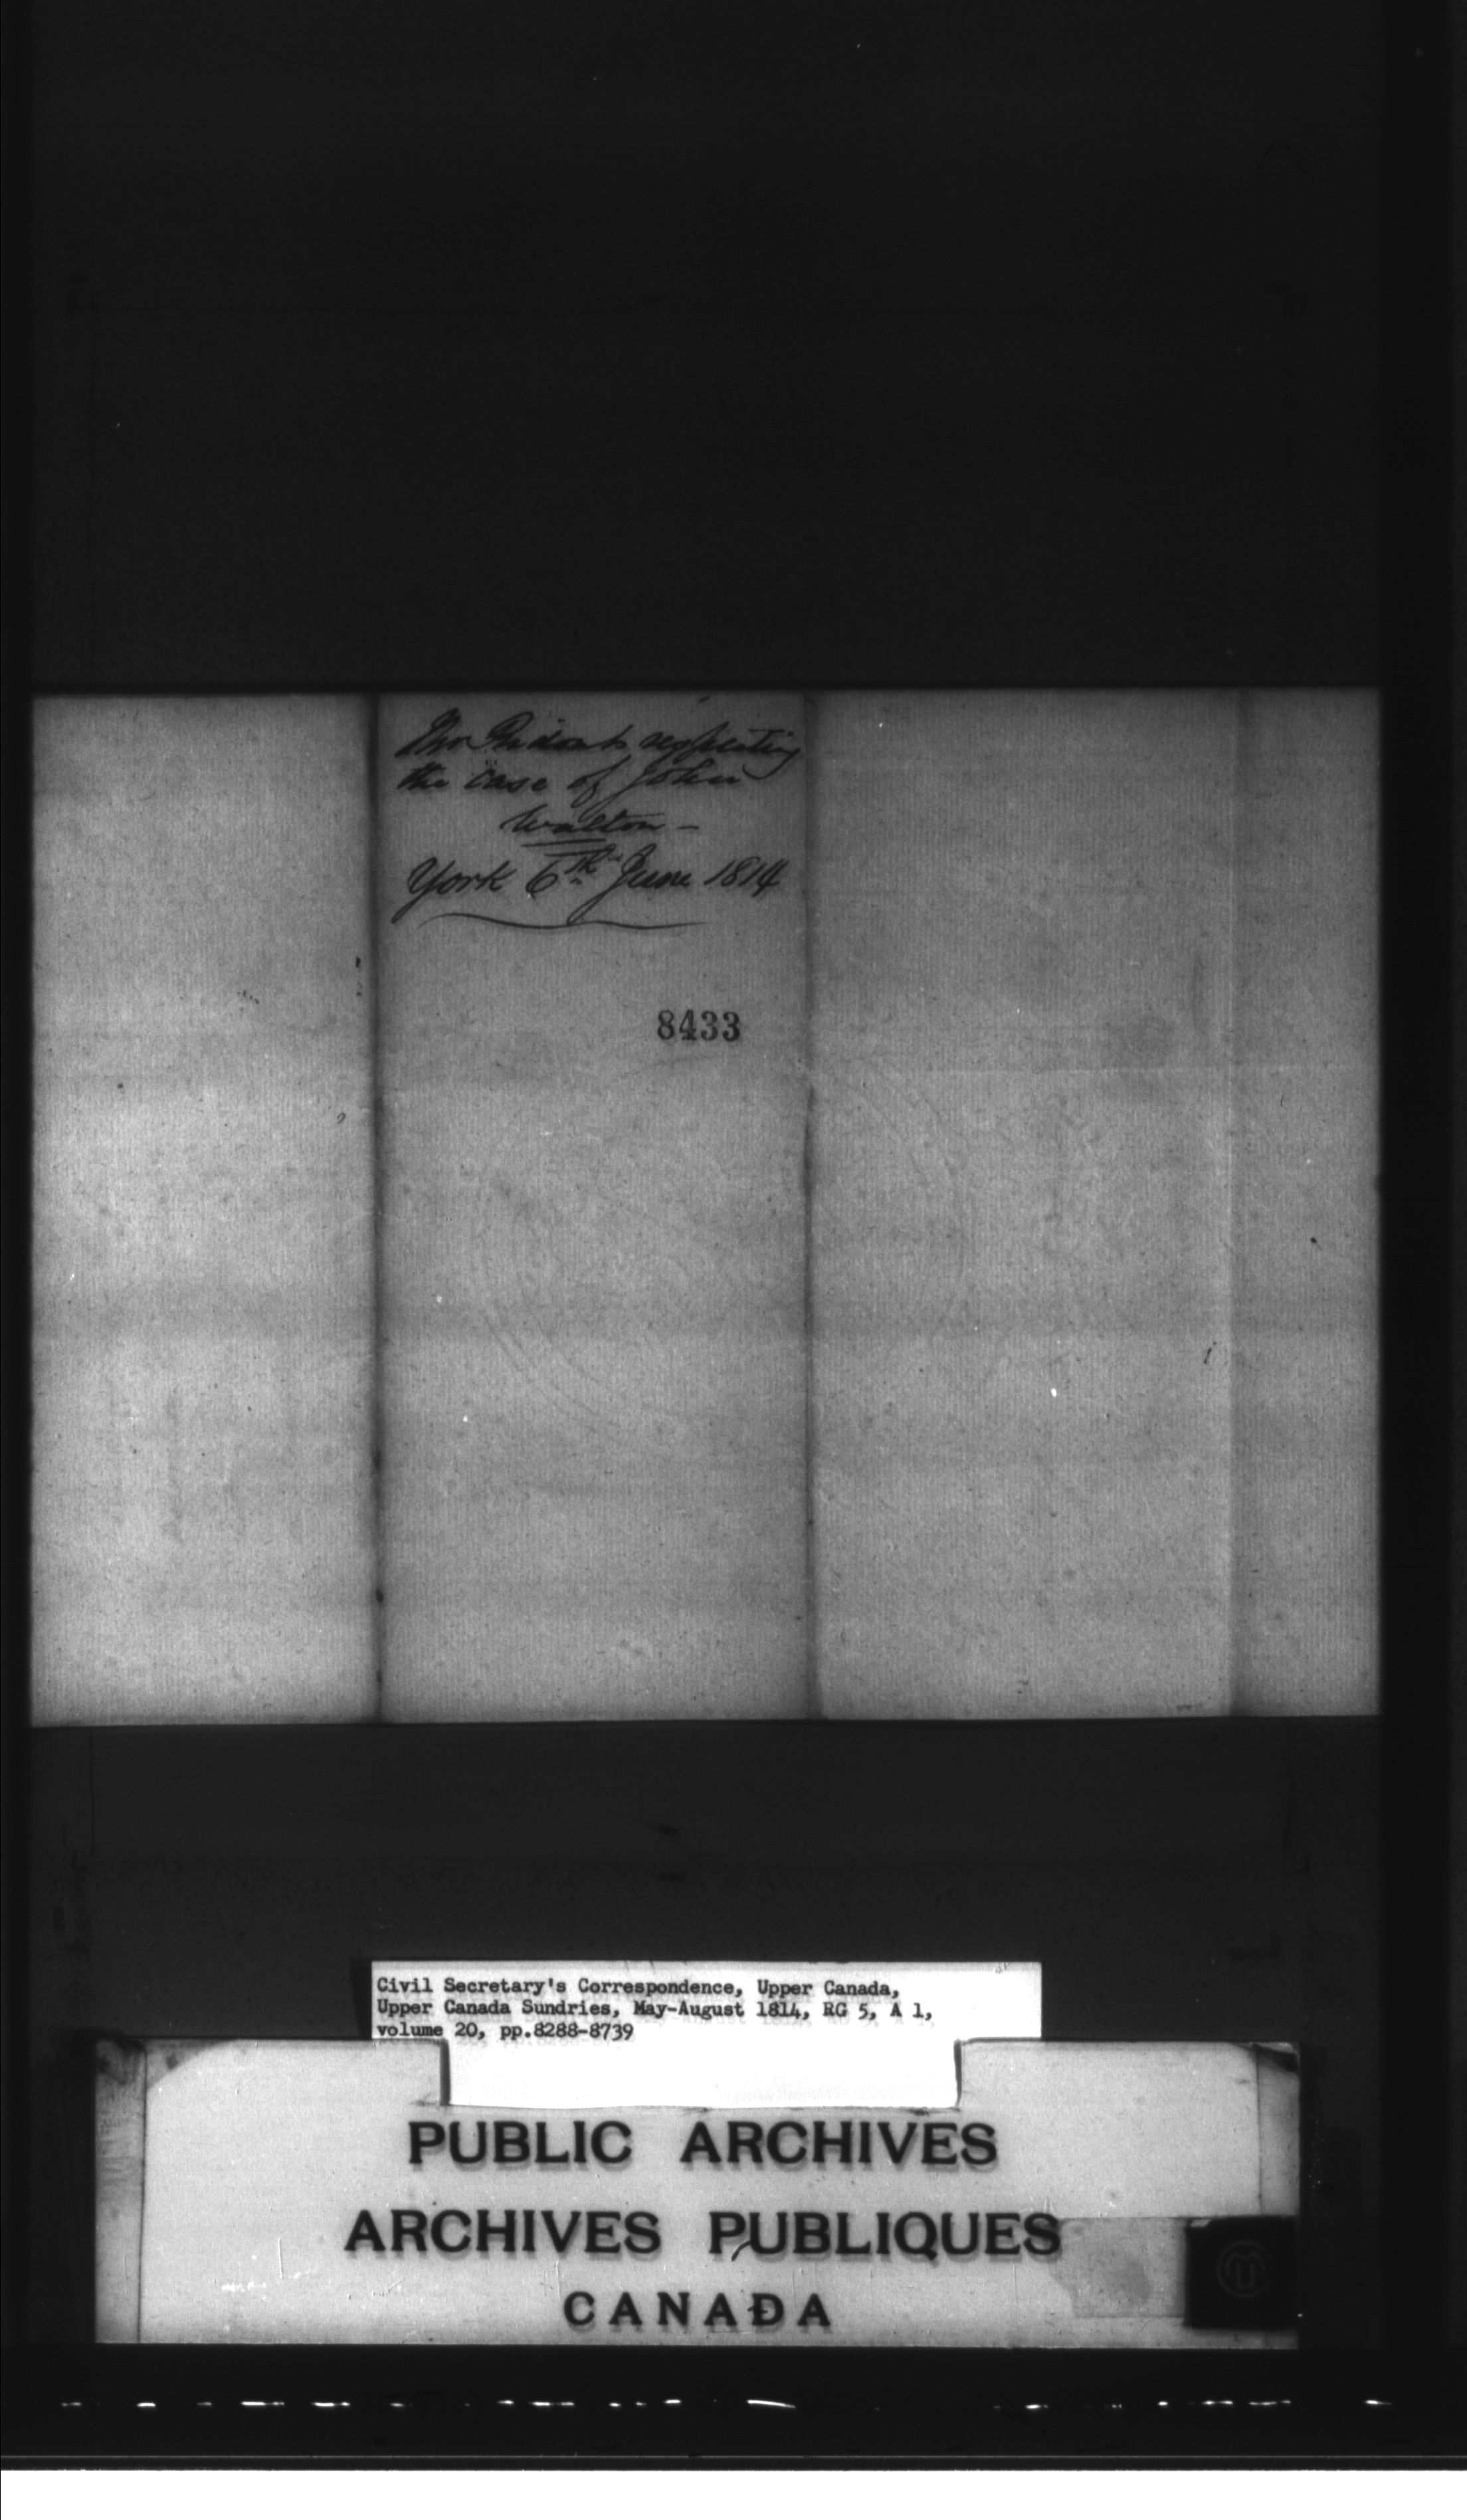 Thos Ridouts respecting
the case of John
Walton —
York 6th June 1814
8433
Civil Secretary's Correspondence, Upper Canada,
Upper Canada Sundries, May-August 1814, RG 5, A 1,
volume 20, pp.8288-8739
PUBLIC ARCHIVES
ARCHIVES PUBLIQUES
CANADA